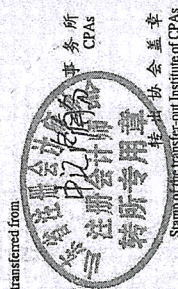 transferred from
事务所
CPAs
注册会计师
转所专用章
转出协会盖章
Stamp of the transfer-out Institute of CPAs